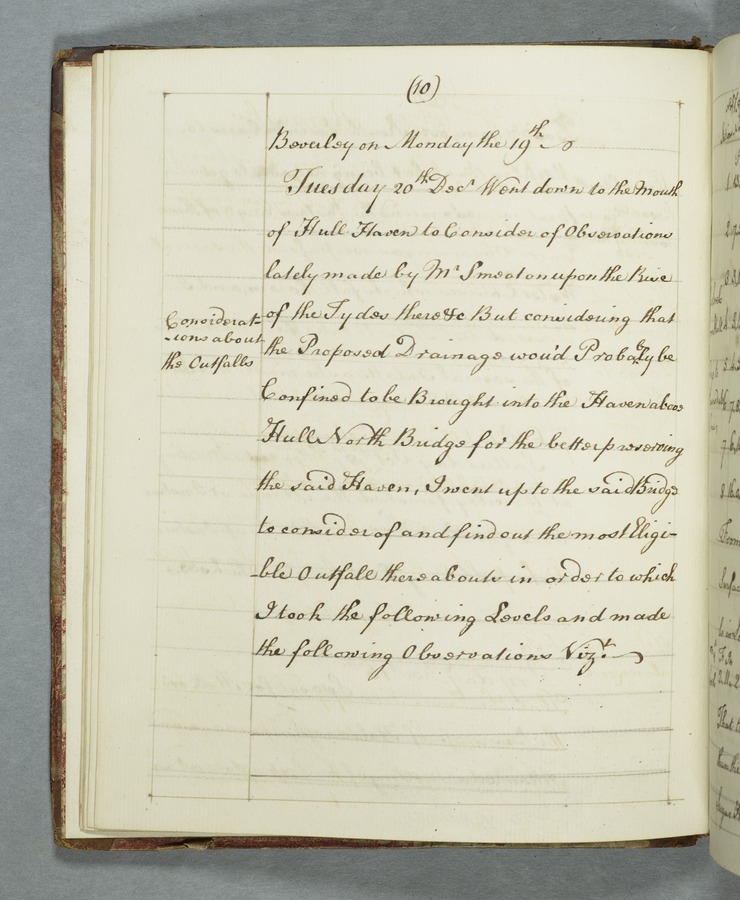 (10)
Beverley on Monday the 19th
Tuesday 20th Decr Went down to the Mouth
of Hull Haven to Consider of Observations
lately made by Mr Smeaton upon the Rise
of the Tydes there &c But considering that
Considerat-
-ions about
the Outfalls
the Proposed Drainage wou'd Probably be
Confined to be Brought into the Haven above
Hull North Bridge for the better preserving
the said Haven, I went up to the said Bridge
to consider of and find out the most Eligi-
-ble Outfall thereabouts in order to which
I took the following Levels and made
the following Observations Vizt.